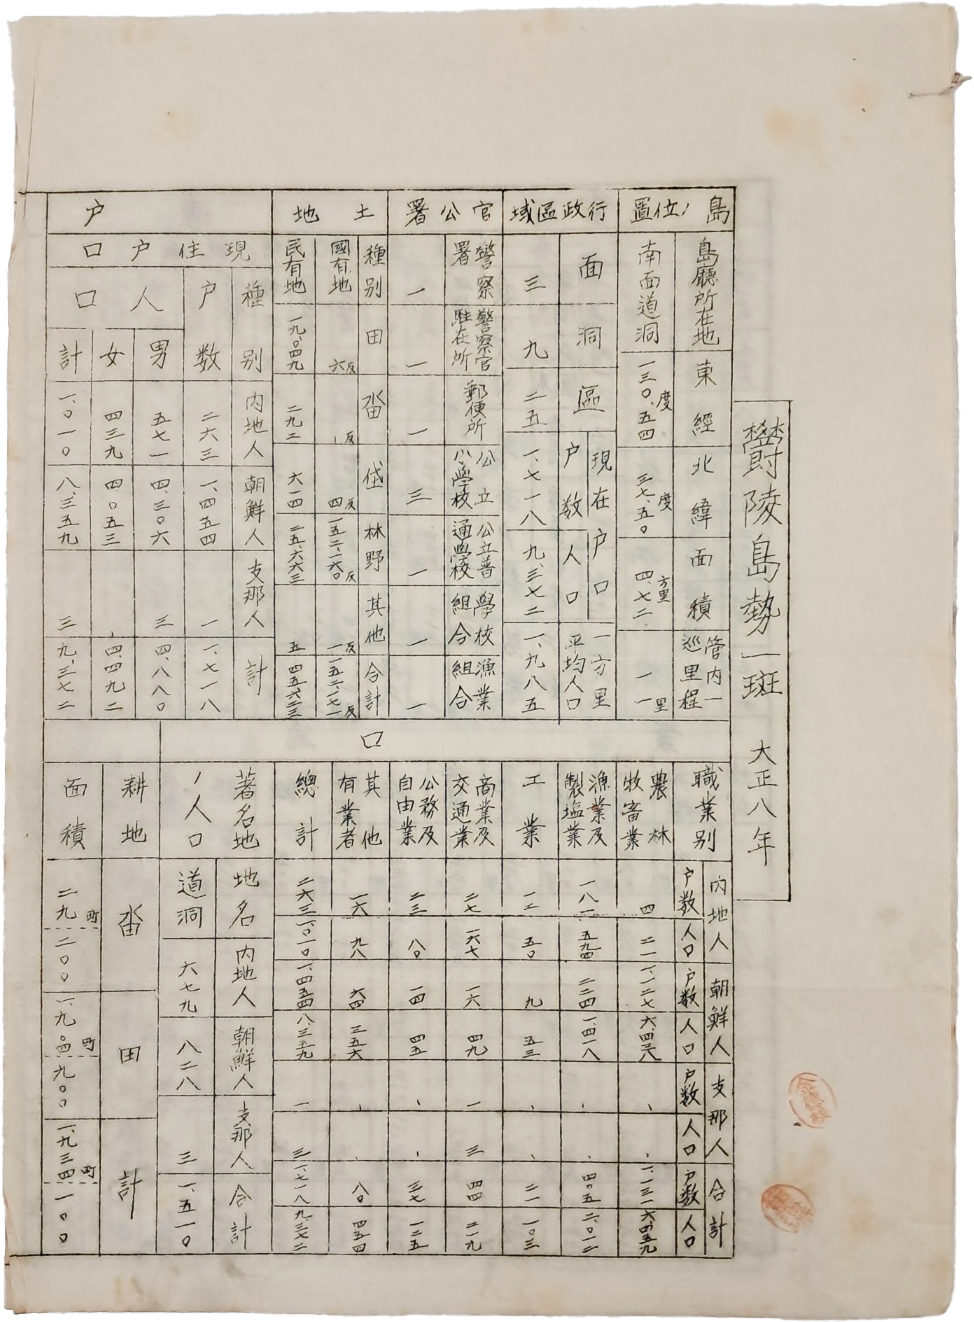 欝陵島勢一斑 大正八年
島ノ位置
島廳所在地 東經 北緯 面積 管内一巡里程
南面道洞 一三〇、五四度 三七、五〇度 四、七二方里 一一里
行政區域
面 洞 區 現在戸口 戸数 人口 一方里平均人口
三 九 二五 一、七一八 九、三七二 一、九八五
官公署
警察署 警察官駐在所 郵便所 公立小学校 公立普通学校 学校組合 漁業組合
一 一 一 三 一 一 一
土地
種別 田 畓 垈 林野 其他 合計
國有地 六反 、反 四反 一五二、一六〇反 一反 一五二、一七一反
民有地 一九、〇四九 二九二 六一四 二五、六六三 五 四五、六二三
戸口
現住戸口
種別 内地人 朝鮮人 支那人 計
戸数 二六三 一、四五四 一 一、七一八
人口
男 五七一 四、三〇六 三 四、八八〇
女 四三九 四、〇五三 、 四、四九二
計 一、〇一〇 八、三五九 三 九、三七二
職業別 内地人 戸数 人口 朝鮮人 戸数 人口 支那人 戸数 人口 合計 戸数 人口
農林牧畜業 四 二一 一、一二七 六、四三八 、 、 一、一三一 六、四五九
漁業及製塩業 一八一 五九四 二二四 一、四一八 、 、 四〇五 二、〇一二
工業 一二 五〇 九 五三 、 、 二一 一〇三
商業及交通業 二七 一六七 一六 四九 一 三 四四 二一九
公務及自由業 二三 八〇 一四 四五 、 、 三七 一二五
其他有業者 一六 九八 六四 三五六 、 、 八〇 四五四
總計 二六三 一、〇一〇 一、四五四 八、三五九 一 三 一、七一八 九、三七二
著名地ノ人口
地名 内地人 朝鮮人 支那人 合計
道洞 六七九 八二八 三 一、五一〇
耕地 畓 田 計
面積 二九町二〇〇 一、九〇四町九〇〇 一、九三四町一〇〇